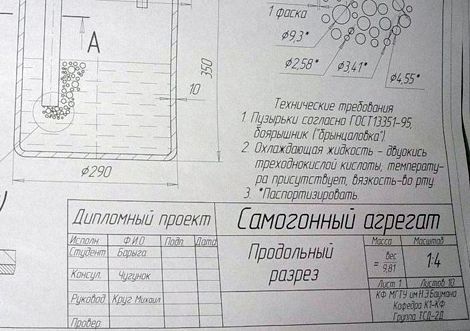 А
1 фаска
⌀9,3*
⌀2,58*
⌀3,41*
⌀4,55*
350
10
⌀290
Технические требования
1 Пузырьки согласно ГОСТ13351-95,
боярышник ("Врынцаловка").
2 Охлаждающая жидкость - двуокись
треходнокислой кислоты, температу-
ра присутствует, вязкость-во рту
3 *Паспортизировать
Дипломный проект
Самогонный агрегат
Исполн Ф И О Подп Дата
Студент Барыга
Консул. Чугунок
Руковод Круг Михаил
Провер.
Продольный
разрез
Масса Масштаб
= вес
9,81
1:4
Лист 1 Листов 10
КФ МГТУ им Н.Э.Баумана
Кафедра К1-КФ
Группа ТСД-2Д